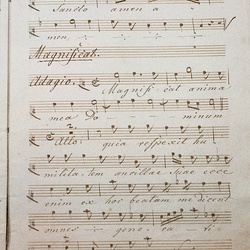 Sancto amen a
men
Magnificat.
Adagio.
Magnificat anima
mea Do minum
2.
Allo. quia respexit hu
milita tem ancillae suae ecce
enim ex hoc beatam me dicent
omnes gene ra ti